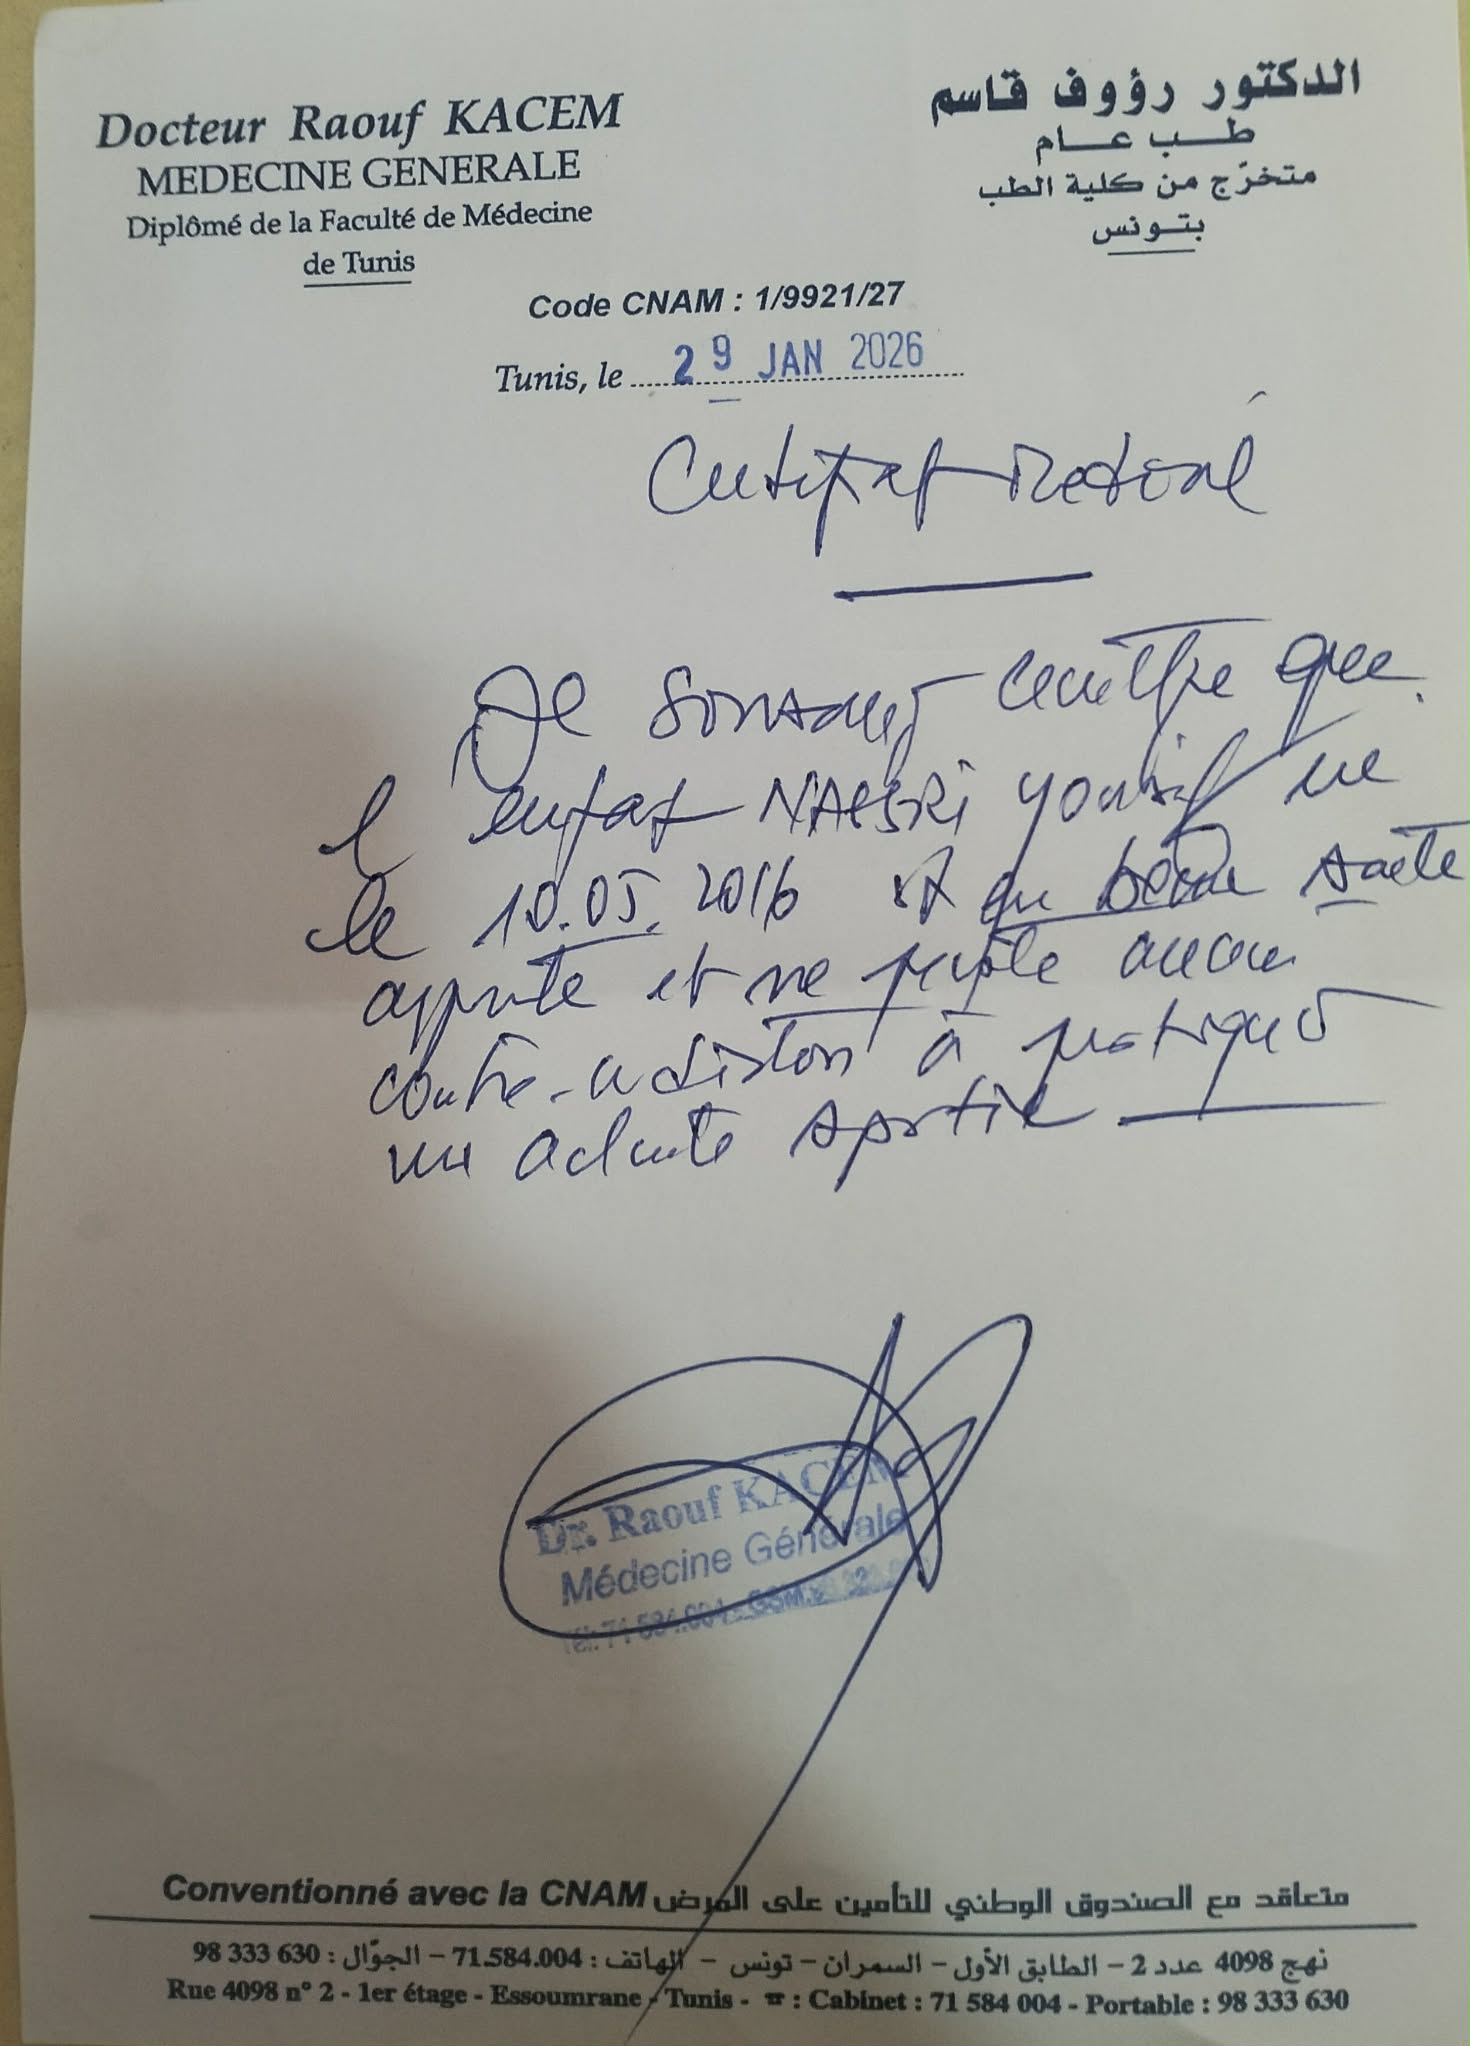 Docteur Raouf KACEM
MEDECINE GENERALE
Diplômé de la Faculté de Médecine
de Tunis
الدكتور رؤوف قاسم
طب عام
متخرّج من كلية الطب
بتونس
Code CNAM : 1/9921/27
Tunis, le 29 JAN 2026
Certificat Médical
Je soussigné certifie que
l'enfant NAESRI Youssef né
le 10.05.2016 est en bonne santé
apparente et ne présente aucune
contre-indication à pratiquer
une activité sportive
Dr. Raouf KACEM
Médecine Générale
Tél: 71 584.004 - GSM:
Conventionné avec la CNAM متعاقد مع الصندوق الوطني للتأمين على المرض
نهج 4098 عدد 2 – الطابق الأول – السمران – تونس – الهاتف : 71.584.004 – الجوّال : 98 333 630
Rue 4098 n° 2 - 1er étage - Essoumrane - Tunis - ☎ : Cabinet : 71 584 004 - Portable : 98 333 630